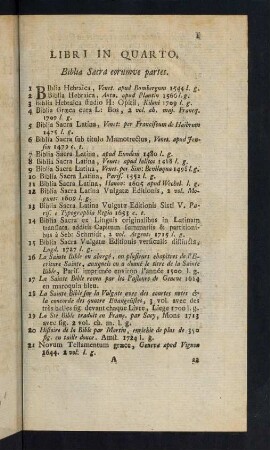 LIBRI IN QUARTO.
Biblia Sacra eorumve partes.
1 Biblia Hebraica, Venet. apud Bombergum 1544 l. g.
2 Biblia Hebraica, Antv. apud Plantin 1566 l. g.
3 Biblia Hebraica studio H: Opitii, Kiloni 1709 l. g.
4 Biblia Græca cura L: Bos, 2 vol. ch. maj. Franeq.
1709 l. g.
5 Biblia Sacra Latina, Venet: per Franciscum de Hailbrun
1475 l. g.
6 Biblia Sacra sub titulo Mamotrectus, Venet. apud Jen-
sin 1479 c. t.
7 Biblia Sacra Latina, apud Eundem 1480 l. g.
8 Biblia Sacra Latina, Venet: apud
9 Biblia Sacra Latina, Venet. per Sim: Bevilaqua 1498 l. g.
10 Biblia Sacra Latina, Paris. 1552 l. g.
11 Biblia Sacra Latina, Hanov: 1605 apud Wechel. l. g.
12 Biblia Sacra Latina Vulgatæ Editionis, 2 vol. Mo-
guntiæ 1609 l. g.
13 Biblia Sacra Latina Vulgatæ Editionis Sixti V. Pa-
ris. e Typographia Regia 1653 c. t.
14 Biblia Sacra ex Linguis originalibus in Latinum
translata, additis Capitum summariis & partitioni-
bus à Seb: Schmidt, 2 vol. Argent. 1715 l. g.
15 Biblia Sacra Vulgatæ Editionis versiculis distincta,
Lugd. 1727 l. g.
16 La Sainte Bible en abregé, en plusieurs chapitres de l'E-
criture Sainte, auxquels on a donné le titre de la Sainte
Bible, Paris. imprimée environ l'année 1500 l. g.
17 La Sainte Bible revue par les Pasteurs de Geneve 1614
en maroquin bleu.
18 La Sainte Bible sur la Vulgate avec des courtes notes &
la concorde des quatre Evangelistes, 3 vol. avec des
très belles fig. devant chaque Livre, Liege 1700 l. g.
19 La Ste Bible traduit en Franç. par Sacy, Mons 1713
avec fig. 2 vol. ch. m. l. g.
20 Histoire de la Bible par Martin, enrichie de plus de 350
fig. en taille douce. Amst. 1724 l. g.
21 Novum Testamentum græce, Genevæ apud Vignon
1644. 2 vol. l. g.
A
22